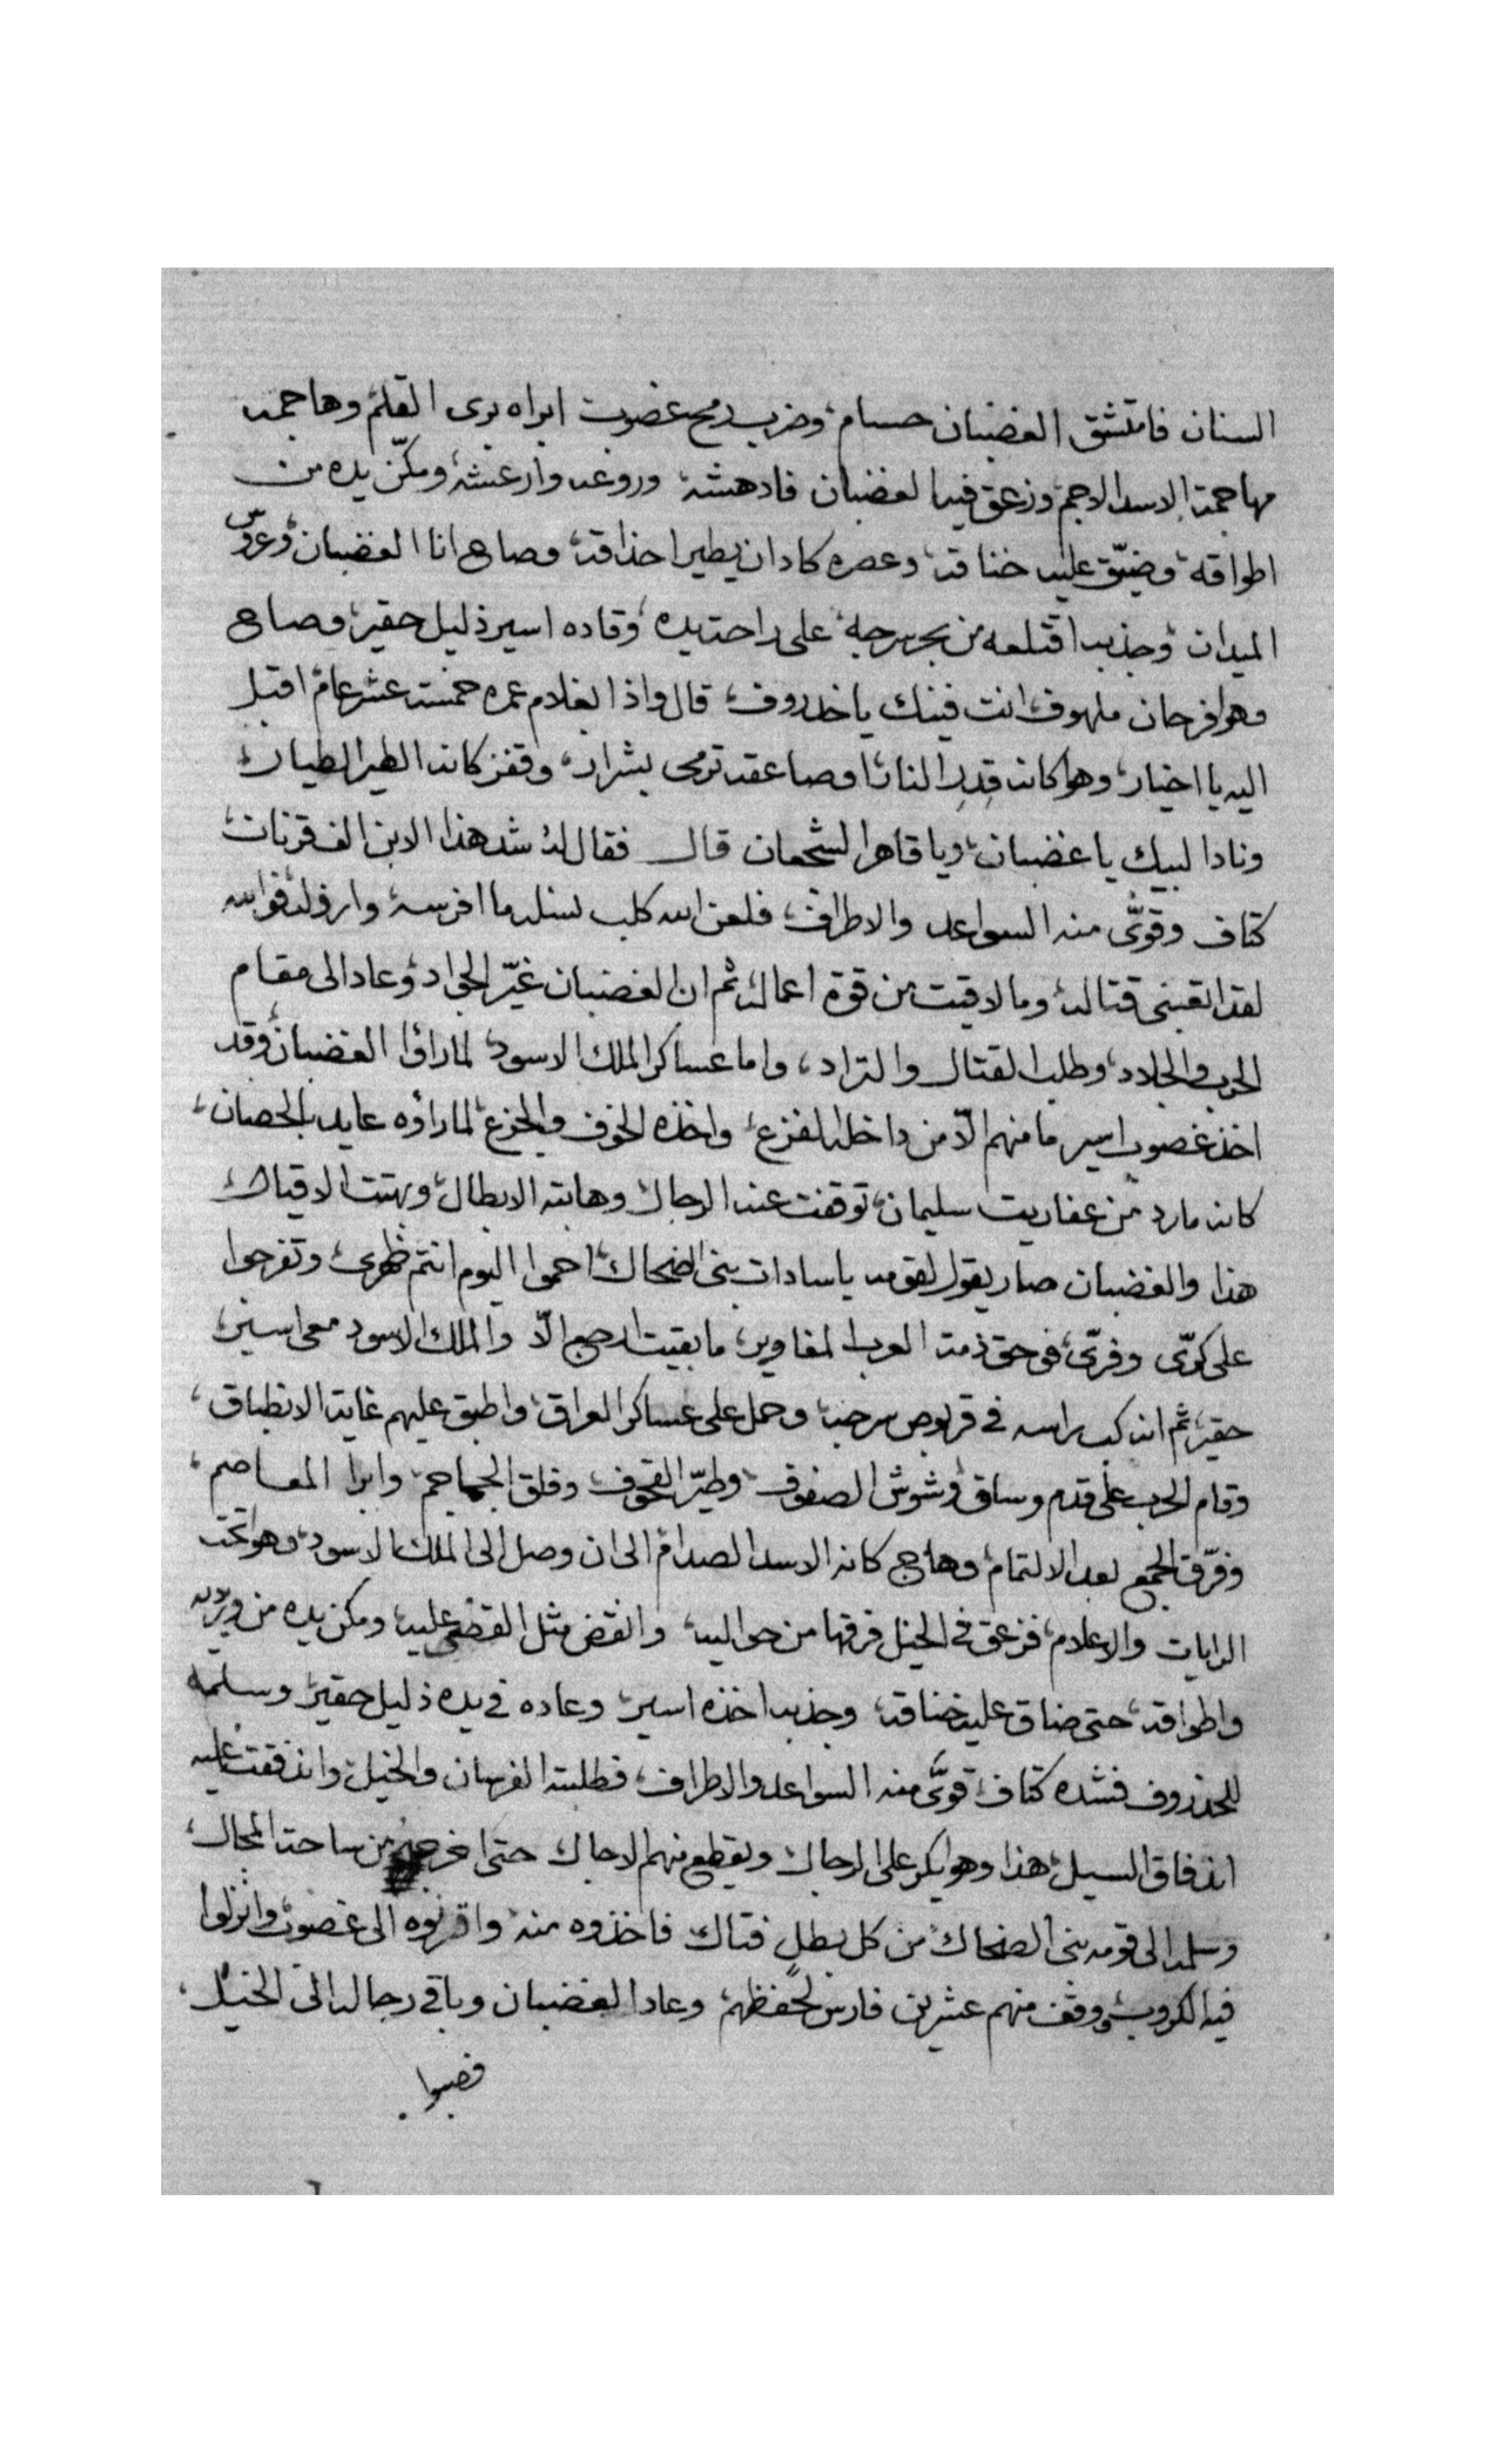 السنان فامتشق الغضبان حسام، وضرب رمح غضوب ابراه بري القلم، وهاجمه
مهاجمة الاسد الاجم، وزعق فيه الغضبان فادهشه، وروعه وارعشه، ومكّن يده من
اطواقه، وضيّق عليه خناقه، وعصره كاد ان يطير احداقه، وصاح انا الغضبان، وعروس
الميدان، وجذبه اقتلعه من بحر سرجه، على راحت يده، وقاده اسير ذليل حقير، وصاح
وهو فرحان ملهوف، انت فينك يا خدروف، قال واذا بغلام عمره خمسة عشر عام، اقبل
اليه يا اخيار، وهو كانه قدر النار، او صاعقه ترمي بشرار، وقفز كانه الطير الطيار،
ونادا لبيك يا غضبان، ويا قاهر الشجعان قال فقال له شد هذا الابن الف قرنان،
كتاف وقوّي منه السواعد والاطراف، فلعن الله كلب نسله ما افرسه، وارذله، فوالله
لقد اتعبني قتاله، وما لاقيت من قوة اعماله، ثم ان الغضبان غيّر الجواد، وعاد الى مقام
الحرب والجلاد، وطلب القتال والتراد، واما عساكر الملك الاسود، لما راؤا الغضبان، وقد
اخذ غضوب اسير ما منهم الّا من داخله الفزع، واخذه الخوف والجزع، لما راؤه عايد بالحصان،
كانه مارد من عفاريت سليمان، توقفت عنه الرجال، وهابته الابطال، وبهتت الاقيال،
هذا والغضبان صار يقول لقومه يا سادات بني الضحاك، احموا اليوم انتم ظهري، وتفرجوا
على كرّي وفرّي، في حق ذمة العرب المغاوير، ما بقيت ارجع الّا والملك الاسود معي اسير،
حقير، ثم انه كب براسه في قربوص سرجه، وحمل على عساكر العراق، واطبق عليهم غاية الانطباق،
وقام الحرب على قدم وساق، وشوش الصفوف، وطيّر القحوف، وفلق الجماجم، وابرا المعاصم،
وفرّق الجمع بعد الالتمام، وهاج كانه الاسد الصدام، الى ان وصل الى الملك الاسود، وهو تحت
الرايات والاعلام، فزعق في الخيل فرقها من حواليه، وانقض مثل القضى عليه، ومكن يده من وريده
واطواقه، حتى ضاق عليه خناقه، وجذبه اخذه اسير، وعاده في يده ذليل حقير، وسلمه
للخدروف فشده كتاف، قوّي منه السواعد والاطراف، فطلبته الفرسان والخيل، واندفقت عليه
اندفاق السيل، هذا وهو يكر على الرجال، ويقطع منهم الاجال، حتى اخرجه من ساحة المجال،
وسلمه الى قومه بني الضحاك، من كل بطل فتاك فاخذوه منه، واقرنوه الى غضوب، وانزلوا
فيه الكروب، ووقف منهم عشرين فارس لحفظهم، وعاد الغضبان وباقي رجاله الى الخيل،
فصبوا